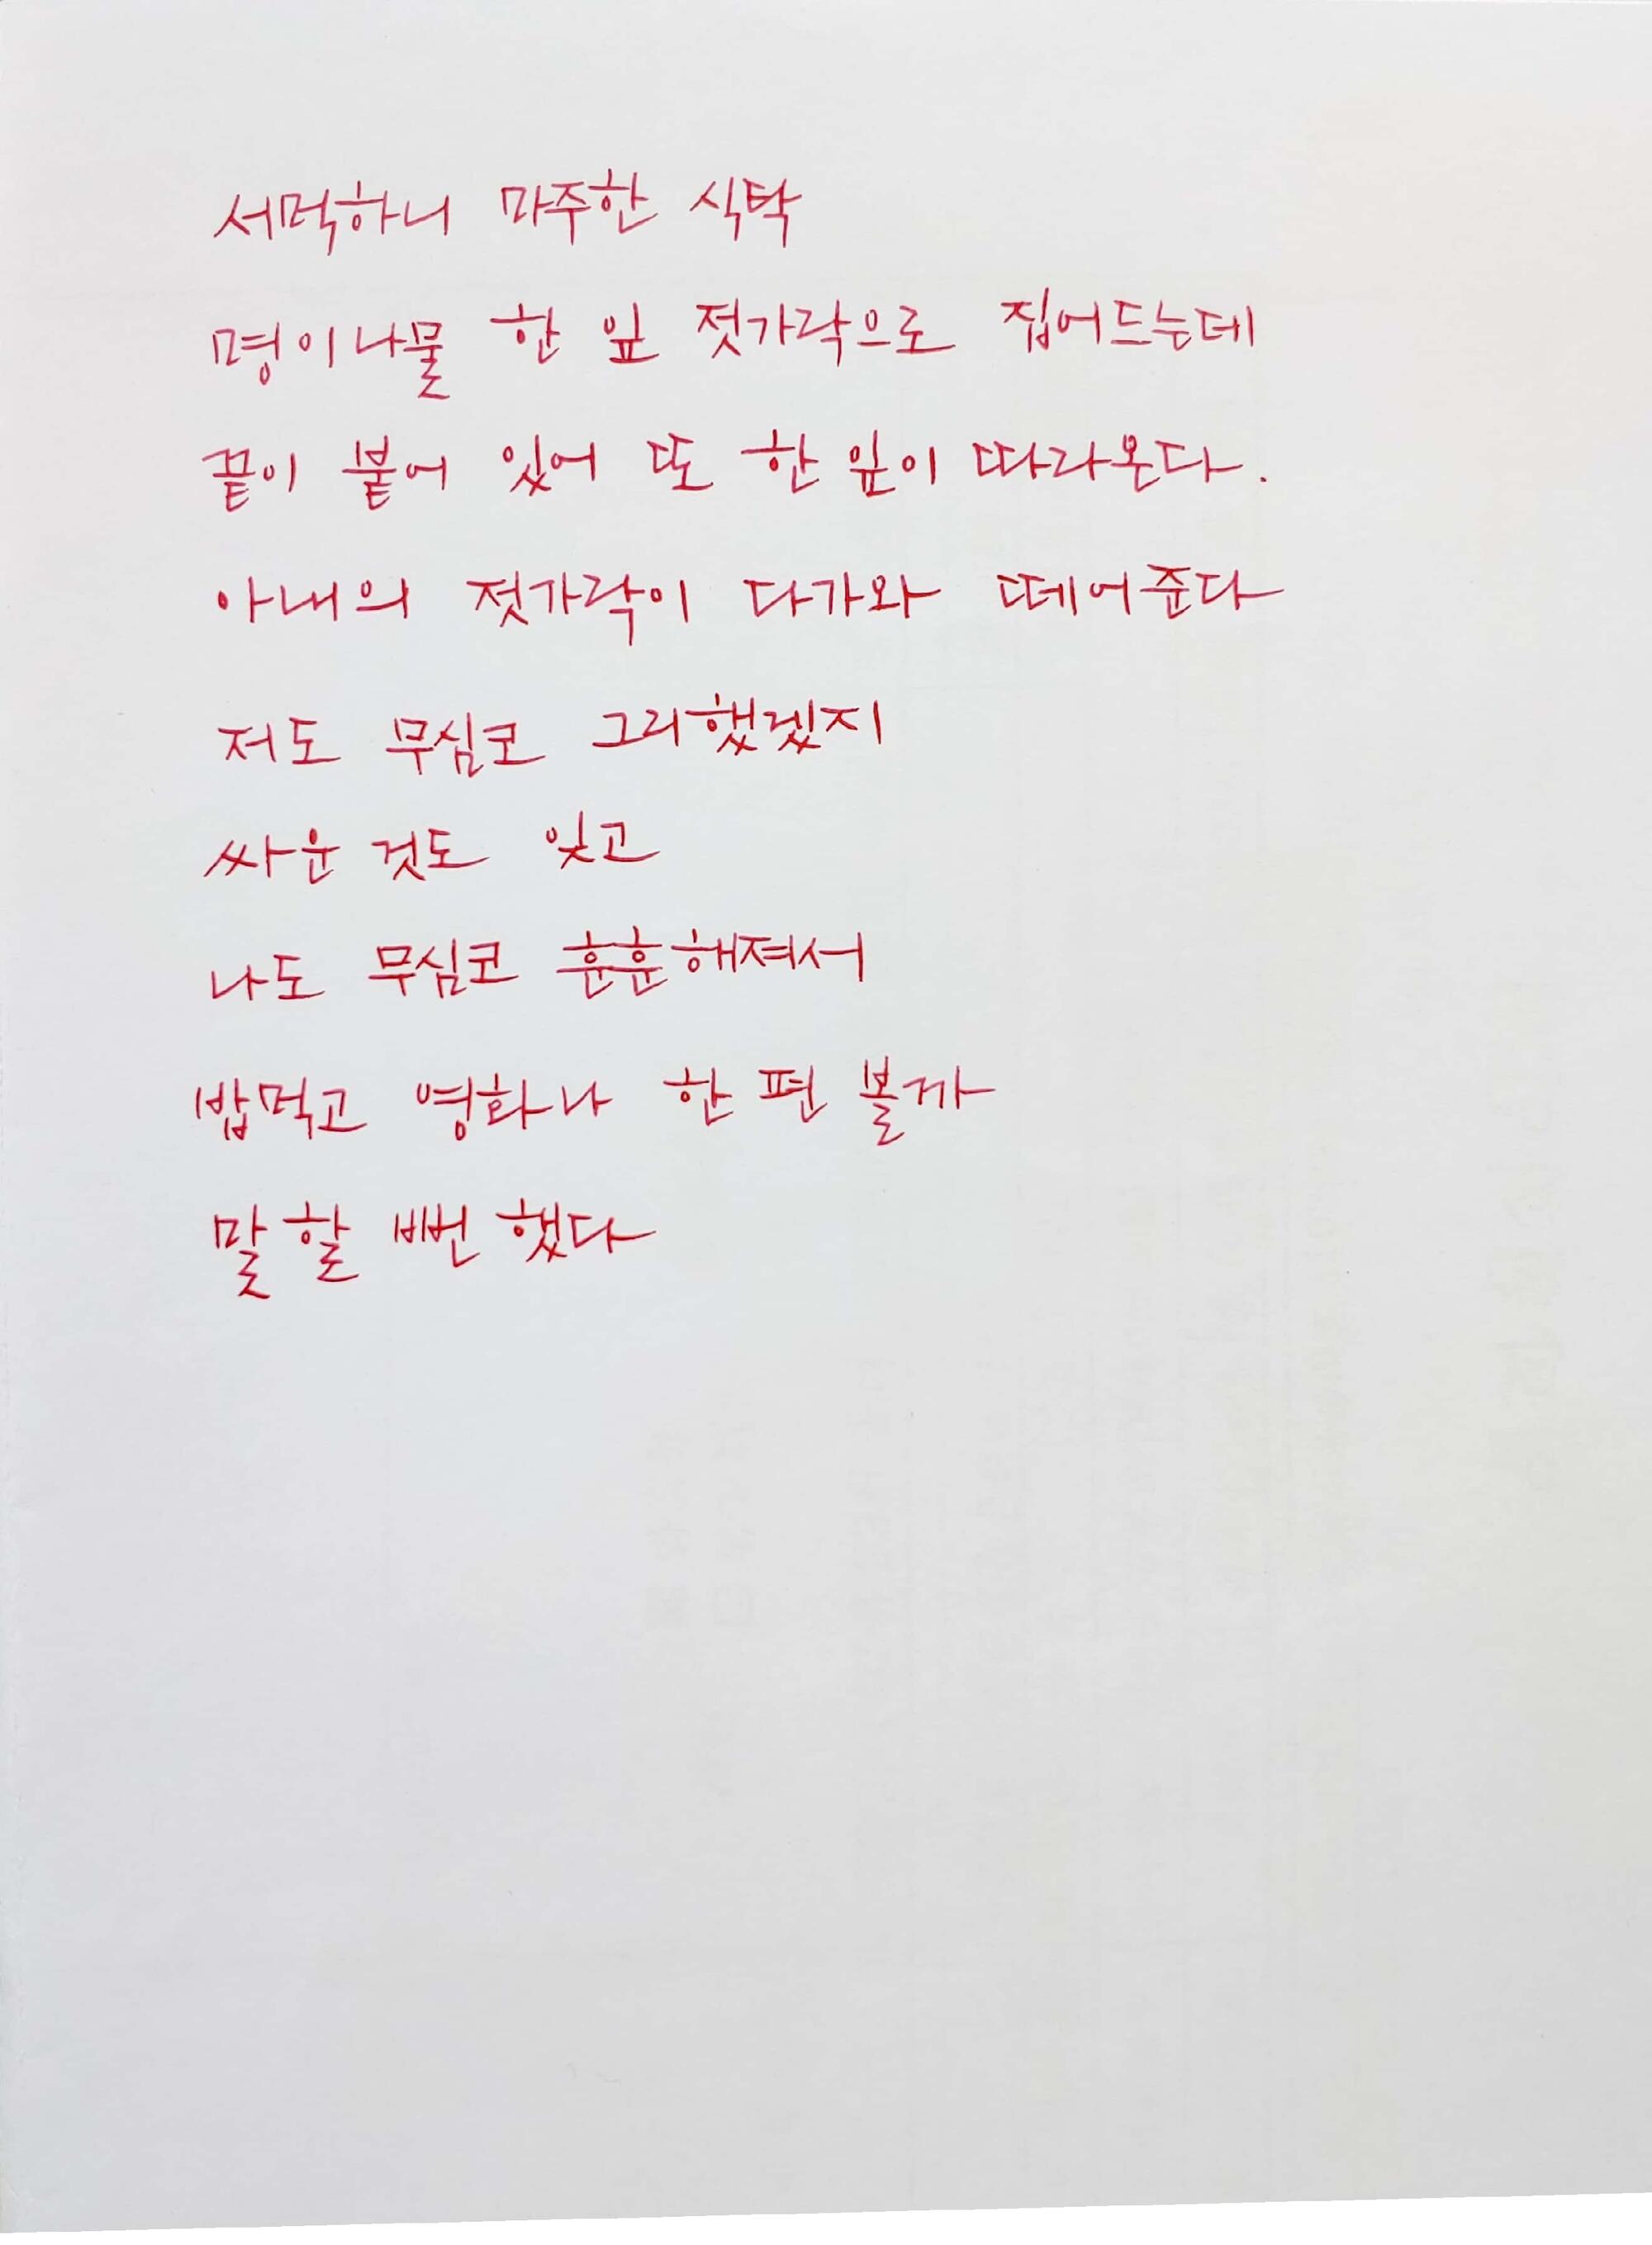 서먹하니 마주한 식탁
명이나물 한 잎 젓가락으로 집어드는데
끝이 붙어 있어 또 한 잎이 따라온다.
아내의 젓가락이 다가와 떼어준다
저도 무심코 그리했겠지
싸운 것도 잊고
나도 무심코 훈훈해져서
밥먹고 영화나 한 편 볼까
말할 뻔했다